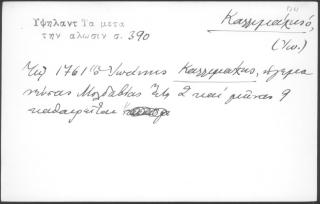 Υψηλαντ Τα μετα
την αλωσιν σ. 390
Καλλιμάχης,
(Ιω.)
Τῷ 1761 ὁ Ἰωάννης Καλλιμάχης, ἡγεμο
νεύσας Μολδαβίας ἔτη 2 καί μῆνας 9
καθαιρεῖται